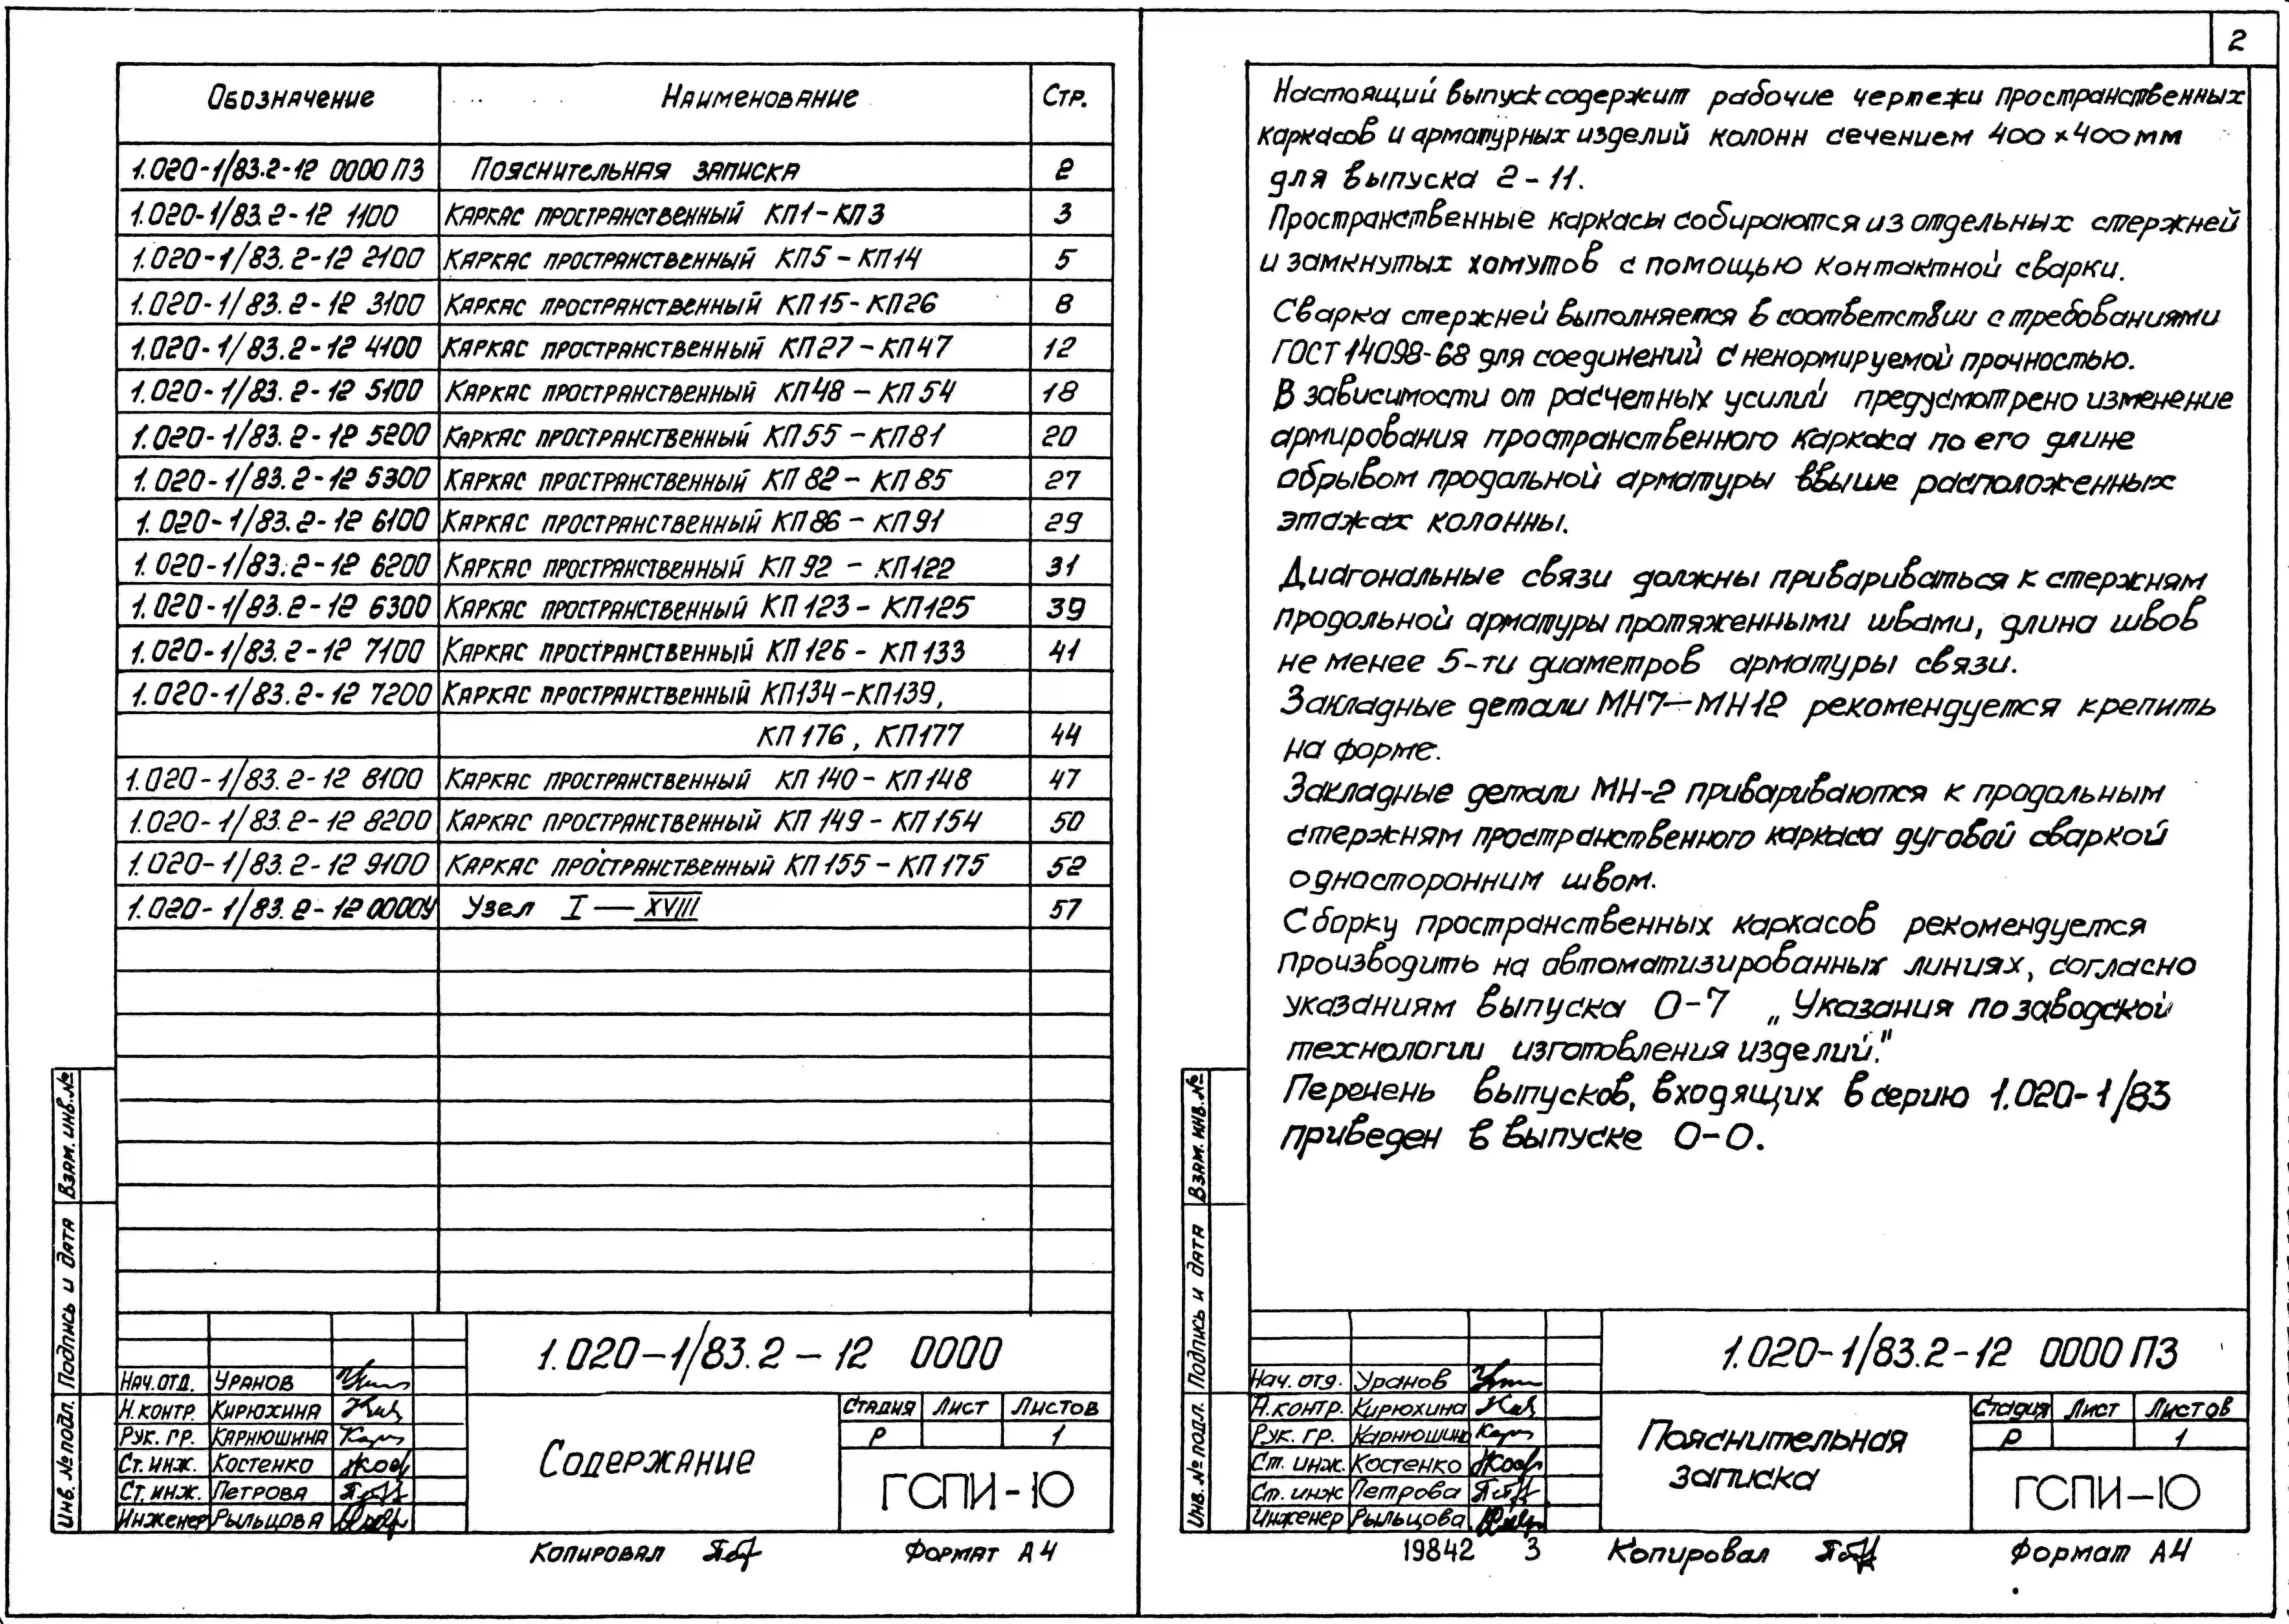 Обозначение Наименование Стр.
1.020-1/83.2-12 0000ПЗ Пояснительная записка 2
1.020-1/83.2-12 1100 Каркас пространственный КП1-КП3 3
1.020-1/83.2-12 2100 Каркас пространственный КП5-КП14 5
1.020-1/83.2-12 3100 Каркас пространственный КП15-КП26 8
1.020-1/83.2-12 4100 Каркас пространственный КП27-КП47 12
1.020-1/83.2-12 5100 Каркас пространственный КП48-КП54 18
1.020-1/83.2-12 5200 Каркас пространственный КП55-КП81 20
1.020-1/83.2-12 5300 Каркас пространственный КП82-КП85 27
1.020-1/83.2-12 6100 Каркас пространственный КП86-КП91 29
1.020-1/83.2-12 6200 Каркас пространственный КП92-КП122 31
1.020-1/83.2-12 6300 Каркас пространственный КП123-КП125 39
1.020-1/83.2-12 7100 Каркас пространственный КП126-КП133 41
1.020-1/83.2-12 7200 Каркас пространственный КП134-КП139,
КП176, КП177 44
1.020-1/83.2-12 8100 Каркас пространственный КП140-КП148 47
1.020-1/83.2-12 8200 Каркас пространственный КП149-КП154 50
1.020-1/83.2-12 9100 Каркас пространственный КП155-КП175 52
1.020-1/83.2-12 0000У Узел I — XVIII 57
Взам. инв.№
Подпись и дата
Инв. № подл.
1.020-1/83.2-12 0000
Нач.отд. Уранов
Н.контр. Кирюхина
Рук. гр. Карнюшина
Ст. инж. Костенко
Ст. инж. Петрова
Инженер Рыльцова
Содержание
Стадия Лист Листов
Р 1
ГСПИ-10
Копировал Формат А4
2
Настоящий выпуск содержит рабочие чертежи пространственных
каркасов и арматурных изделий колонн сечением 400×400мм
для выпуска 2-11.
Пространственные каркасы собираются из отдельных стержней
и замкнутых хомутов с помощью контактной сварки.
Сварка стержней выполняется в соответствии с требованиями
ГОСТ 14098-68 для соединений с ненормируемой прочностью.
В зависимости от расчетных усилий предусмотрено изменение
армирования пространственного каркаса по его длине
обрывом продольной арматуры ввыше расположенных
этажах колонны.
Диагональные связи должны привариваться к стержням
продольной арматуры протяженными швами, длина швов
не менее 5-ти диаметров арматуры связи.
Закладные детали МН7—МН12 рекомендуется крепить
на форме.
Закладные детали МН-2 привариваются к продольным
стержням пространственного каркаса дуговой сваркой
односторонним швом.
Сборку пространственных каркасов рекомендуется
производить на автоматизированных линиях, согласно
указаниям выпуска 0-7 „Указания по заводской
технологии изготовления изделий."
Перечень выпусков, входящих в серию 1.020-1/83
приведен в выпуске 0-0.
Взам. инв.№
Подпись и дата
Инв. № подл.
1.020-1/83.2-12 0000ПЗ
Нач. отд. Уранов
Н.контр. Кирюхина
Рук. гр. Карнюшина
Ст. инж. Костенко
Ст. инж Петрова
Инженер Рыльцова
Пояснительная
записка
Стадия Лист Листов
Р 1
ГСПИ-10
19842 3 Копировал Формат А4